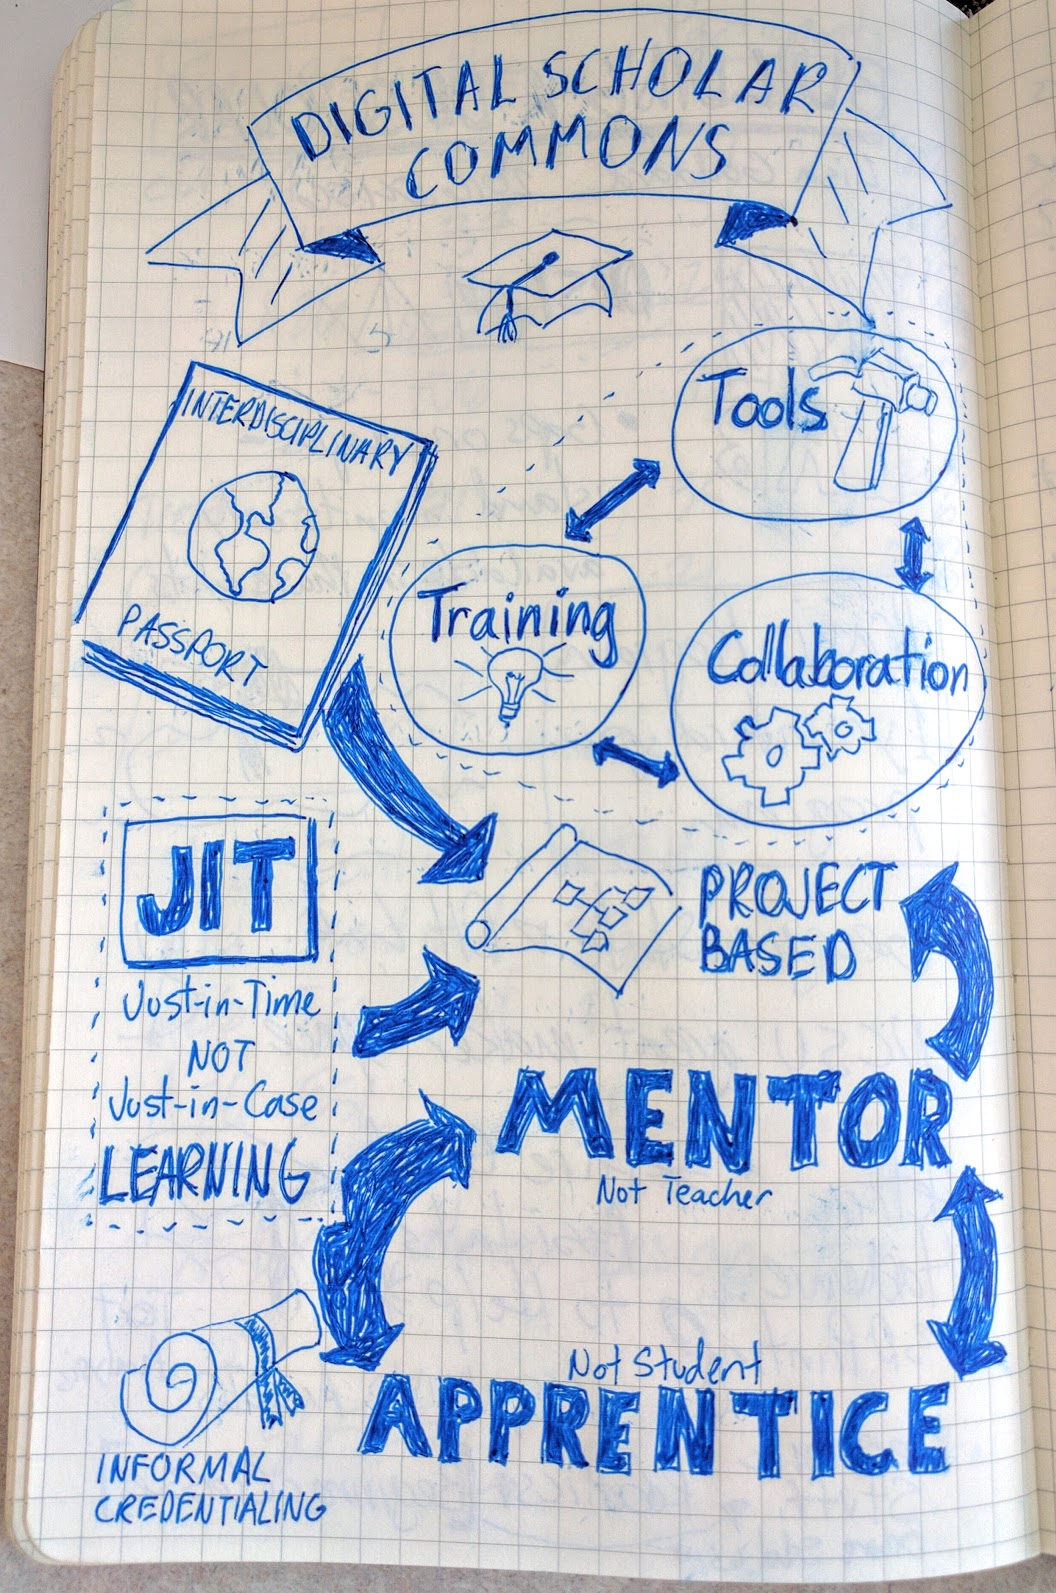 DIGITAL SCHOLAR
COMMONS
INTERDISCIPLINARY
PASSPORT
Tools
Training
Collaboration
JIT
Just-in-Time
NOT
Just-in-Case
LEARNING
PROJECT
BASED
MENTOR
Not Teacher
Not Student
APPRENTICE
INFORMAL
CREDENTIALING